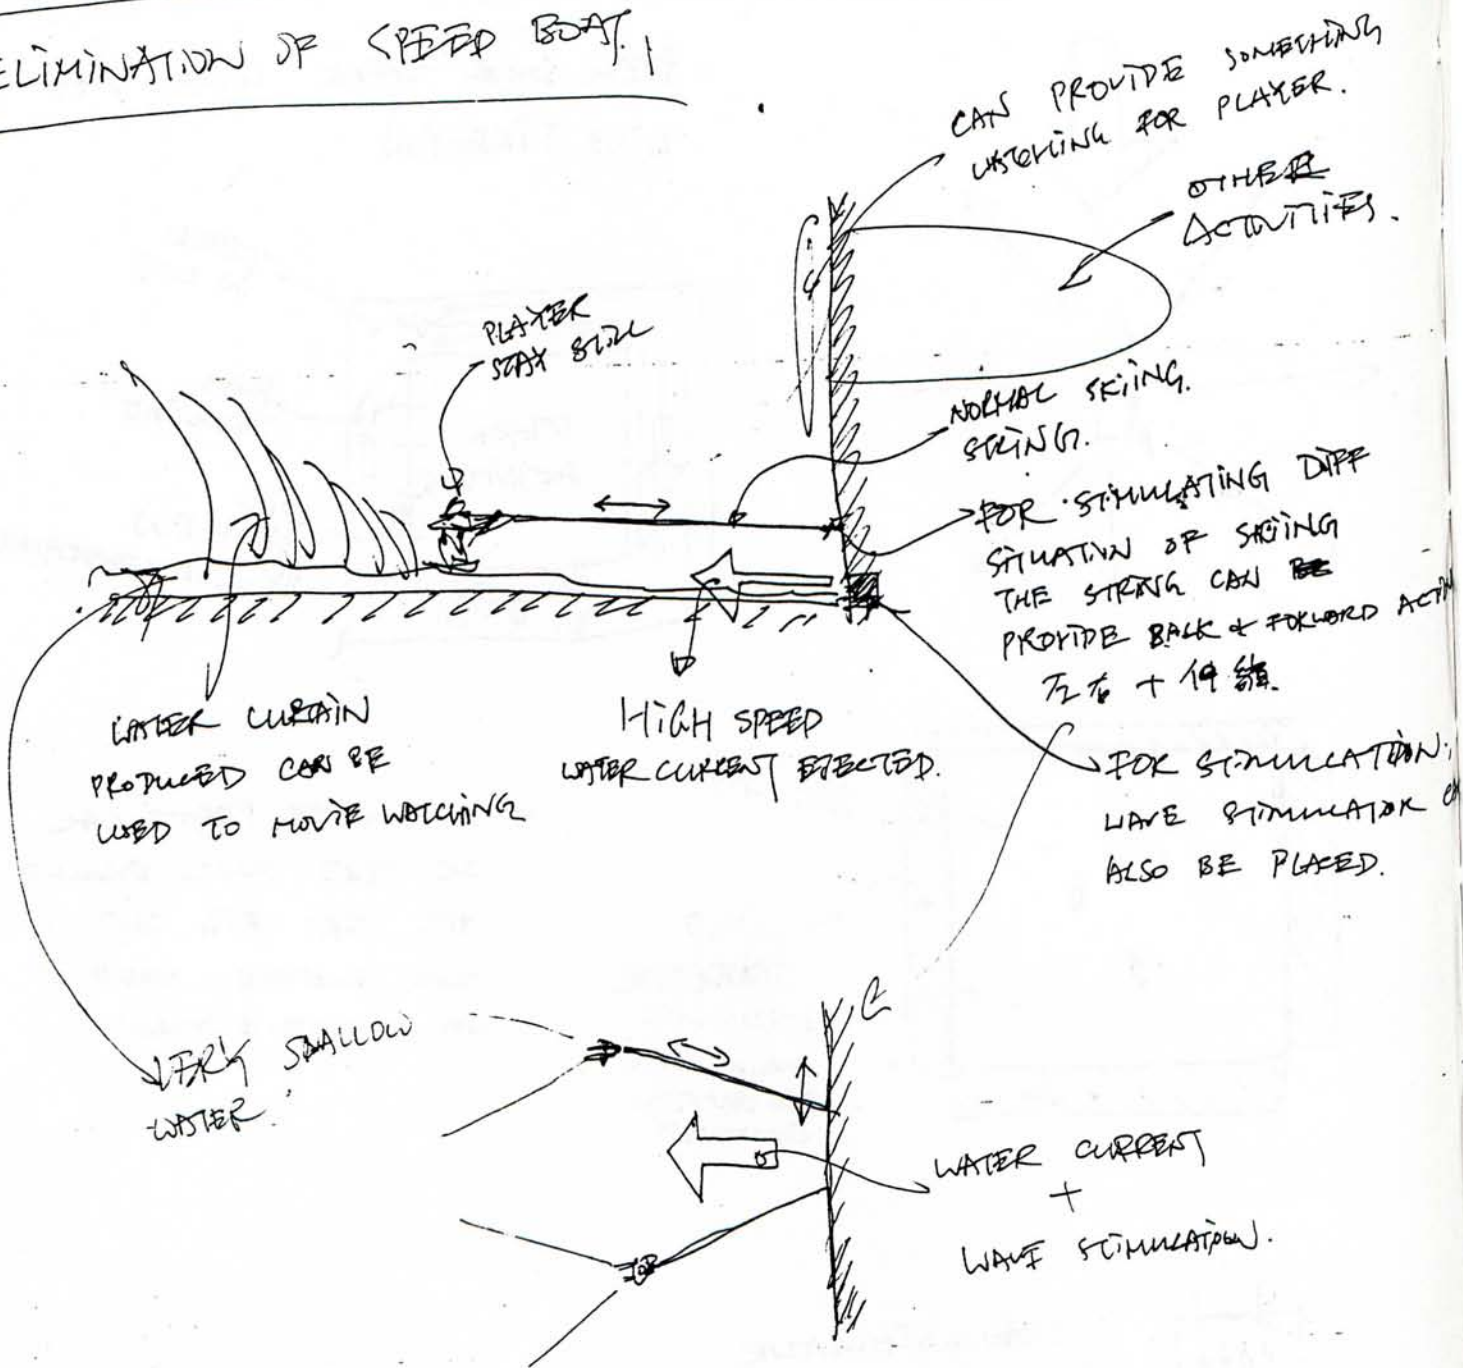 ELIMINATION OF SPEED BOAT.
CAN PROVIDE SOMETHING
WATCHING FOR PLAYER.
OTHER
ACTIVITIES.
PLAYER
STAY STILL
NORMAL SKIING.
STRING.
FOR STIMULATING DIFF
SITUATION OF SKIING
THE STRING CAN BE
PROVIDE BACK & FORWARD ACTION
左右 + 伸縮.
WATER CURTAIN
PRODUCED CAN BE
USED TO MOVIE WATCHING
HIGH SPEED
WATER CURRENT EJECTED.
FOR STIMULATION,
WAVE STIMULATOR
ALSO BE PLACED.
VERY SHALLOW
WATER.
WATER CURRENT
+
WAVE STIMULATION.